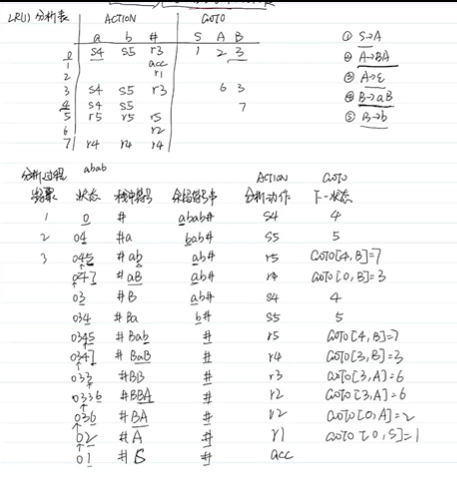 LR(1) 分析表 ACTION GOTO
a b # S A B
0 s4 s5 r3 1 2 3
1 acc
2 r1
3 s4 s5 r3 6 3
4 s4 s5 7
5 r5 r5 r5
6 r2
7 r4 r4 r4
① S→A
② A→BA
③ A→ε
④ B→aB
⑤ B→b
分析过程 abab
步骤 状态 栈中符号 余留符号串 ACTION 分析动作 GOTO 下一状态
1 0 # abab# s4 4
2 04 #a bab# s5 5
3 045 #ab ab# r5 GOTO[4,B]=7
047 #aB ab# r4 GOTO[0,B]=3
03 #B ab# s4 4
034 #Ba b# s5 5
0345 #Bab # r5 GOTO[4,B]=7
0347 #BaB # r4 GOTO[3,B]=3
033 #BB # r3 GOTO[3,A]=6
0336 #BBA # r2 GOTO[3,A]=6
036 #BA # r2 GOTO[0,A]=2
02 #A # r1 GOTO[0,S]=1
01 #S # acc